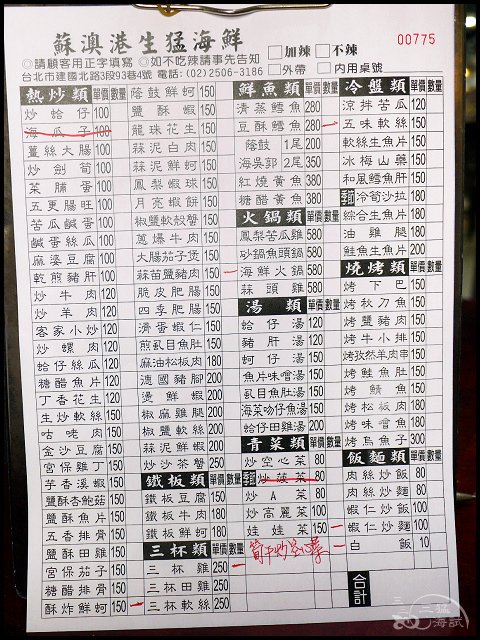 蘇澳港生猛海鮮
00775
加辣 不辣
◎請顧客用正字填寫 ◎如不吃辣請事先告知
外帶 內用桌號
台北市建國北路3段93巷4號 電話:(02)2506-3186
熱炒類 單價 數量
炒蛤仔 100
海瓜子 100
薑絲大腸 100
炒劍筍 100
菜脯蛋 100
五更腸旺 100
苦瓜鹹蛋 100
鹹蛋絲瓜 100
麻婆豆腐 100
乾煎豬肝 100
炒牛肉 100
炒羊肉 100
客家小炒 120
炒螺肉 100
蛤仔絲瓜 150
糖醋魚片 120
丁香花生 120
生炒軟絲 150
咕咾肉 150
金沙豆腐 150
宮保雞丁 150
芋香溪蝦 150
鹽酥杏鮑菇 150
鹽酥魚片 150
五香排骨 150
鹽酥田雞 150
宮保茄子 150
糖醋排骨 150
酥炸鮮蚵 150
蔭鼓鮮蚵 150
鹽酥蝦 150
龍珠花生 150
蒜泥白肉 150
蒜泥鮮蚵 150
鳳梨蝦球 150
月亮蝦餅 150
椒鹽軟殼蟹 150
蔥爆牛肉 150
大腸茄子煲 150
蒜苗鹽豬肉 150
脆皮肥腸 150
四季肥腸 150
滑蛋蝦仁 150
煎虱目魚肚 150
麻油松板肉 180
德國豬腳 200
燙鮮蝦 200
椒麻雞腿 200
椒鹽軟絲 200
蒜泥鮮蝦 200
炒沙茶蟹 250
鐵板類 單價 數量
鐵板豆腐 150
鐵板牛肉 180
鐵板鮮蚵 180
三杯類 單價 數量
三杯雞 250
三杯田雞 250
三杯軟絲 250
鮮魚類 單價 數量
清蒸鱈魚 280
豆酥鱈魚 280
蔭鼓1尾 200
海吳郭2尾 350
紅燒黃魚 380
糖醋黃魚 380
火鍋類 單價 數量
鳳梨苦瓜雞 580
砂鍋魚頭鍋 580
海鮮火鍋 580
蒜頭雞 580
湯類 單價 數量
蛤仔湯 120
豬肝湯 120
蚵仔湯 150
魚片味噌湯 150
虱目魚肚湯 150
海菜吻仔魚湯 150
蛤仔田雞湯 200
青菜類 單價 數量
炒空心菜 80
炒菠菜 80
炒A菜 80
炒高麗菜 100
娃娃菜 150
冷盤類 單價 數量
涼拌苦瓜 120
五味軟絲 150
軟絲生魚片 150
冰梅山藥 150
和風鱈魚肝 150
冷筍沙拉 180
綜合生魚片 180
油雞腿 180
鮭魚生魚片 200
燒烤類 單價 數量
烤下巴 150
烤秋刀魚 150
烤鹽豬肉 150
烤牛小排 150
烤孜然羊肉串 150
烤鮭魚肚 150
烤鯖魚 150
烤松板肉 180
烤味噌魚 180
烤烏魚子 300
飯麵類 單價 數量
肉絲炒飯 80
肉絲炒麵 80
蝦仁炒麵 100
白飯 10
合計